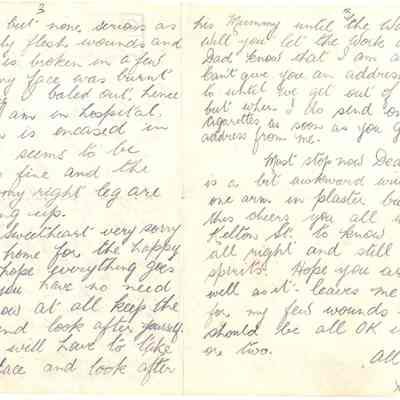 3
but none serious as
ly flesh wounds and
is broken in a few
my face was burnt
I baled out, hence
I am in hospital.
is encased in
seems to be
fine and the
my right leg are
ng up.
Sweetheart very sorry
home for the happy
hope everything goes
you have no need
now at all keep the
and look after yourself.
will have to take
lace and look after
his Mummy until the Wa
Will you let the Work a
Dad know that I am a
Can't give you an address
to until we get out of
but when I do send on
cigarettes as soon as you g
address from me.
Must stop now Dea
is a bit awkward wri
one arm in plaster bu
this cheers you all u
Kelton St. to know
all right and still
spirits. Hope you ar
well as it leaves me
for my few wounds
should be all OK i
or two.
All
x